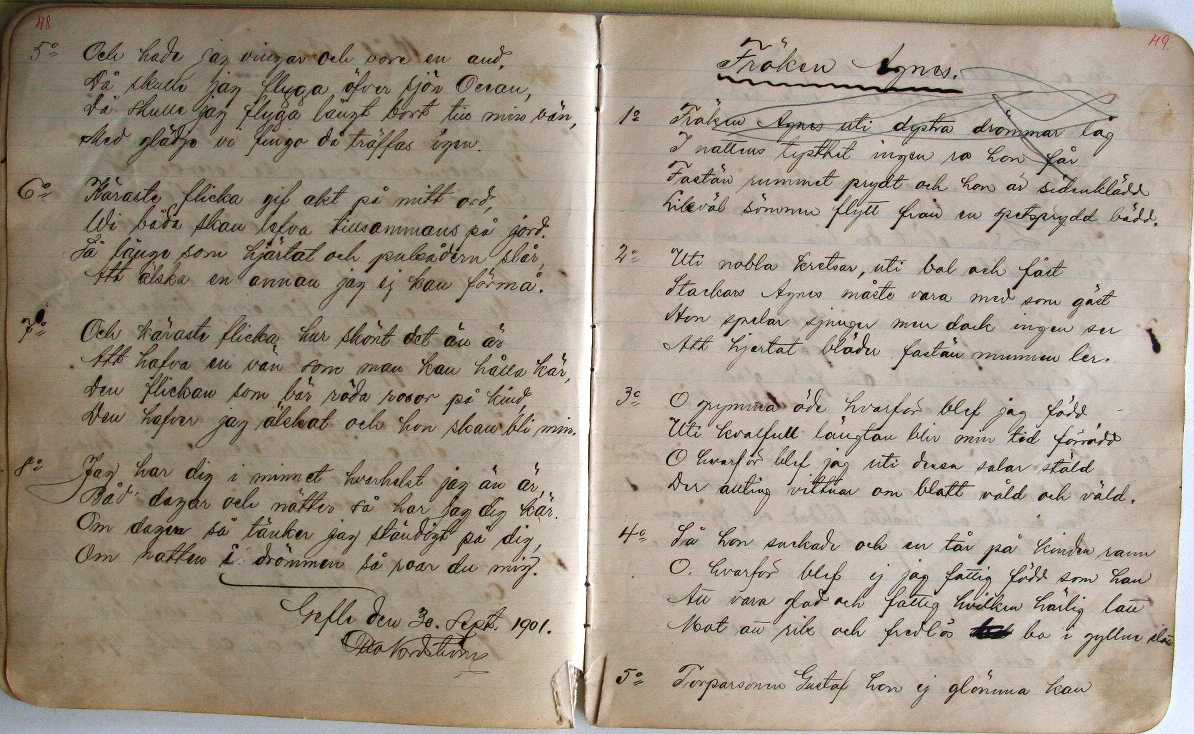 48
5o Och hade jag vingar och vore en and,
Då skulle jag flyga öfver sjön Ocean,
Då skulle jag flyga långt bort till min vän,
Med glädje vi finge då träffas igen.
6o Käraste flicka gif akt på mitt ord,
Wi båda skau lefva tillsammans på jord.
Så länge som hjärtat och pulsådern slår,
Att älska en annan jag ej kan förmå.
7o Och käraste flicka hur skönt det än är
Att hafva en vän som man kan hålla kär,
Den flickan som bär röda rosor på kind
Den hafver jag älskat och hon skau bli min.
8o Jag har dig i minnet hvarhelst jag än är,
Båd dagar och nätter så har jag dig kär.
Om dagen så tänker jag ständigt på dig,
Om natten i drömmen så roar du mig.
Gefle den 30. Sept. 1901.
Otto Nordström
49.
Fröken Agnes.
1o Fröken Agnes uti dystra drömmar låg
I nattens tysthet ingen ro hon får
Fastän rummet prydt och hon är sidenklädd
Likväl sömnen flytt från en spetsprydd bädd.
2o Uti nobla kretsar, uti bal och fäst
Stackars Agnes måste vara med som gäst
Hon spelar sjunger men dock ingen ser
Att hjertat blöder fastän munnen ler.
3o O grymma öde hvarför blef jag född
Uti kvalfull längtan blir min tid förödd
O hvarför blef jag uti dessa salar stäld
Der allting vittnar om blott våld och väld.
4o Så hon suckade och en tår på kinden rann
O. hvarför blef ej jag fattig född som han
Att vara glad och fattig hvilken härlig lått
Mot att rik och fredlös bo i gyllne slått
5o Torparsonen Gustaf hon ej glömma kan